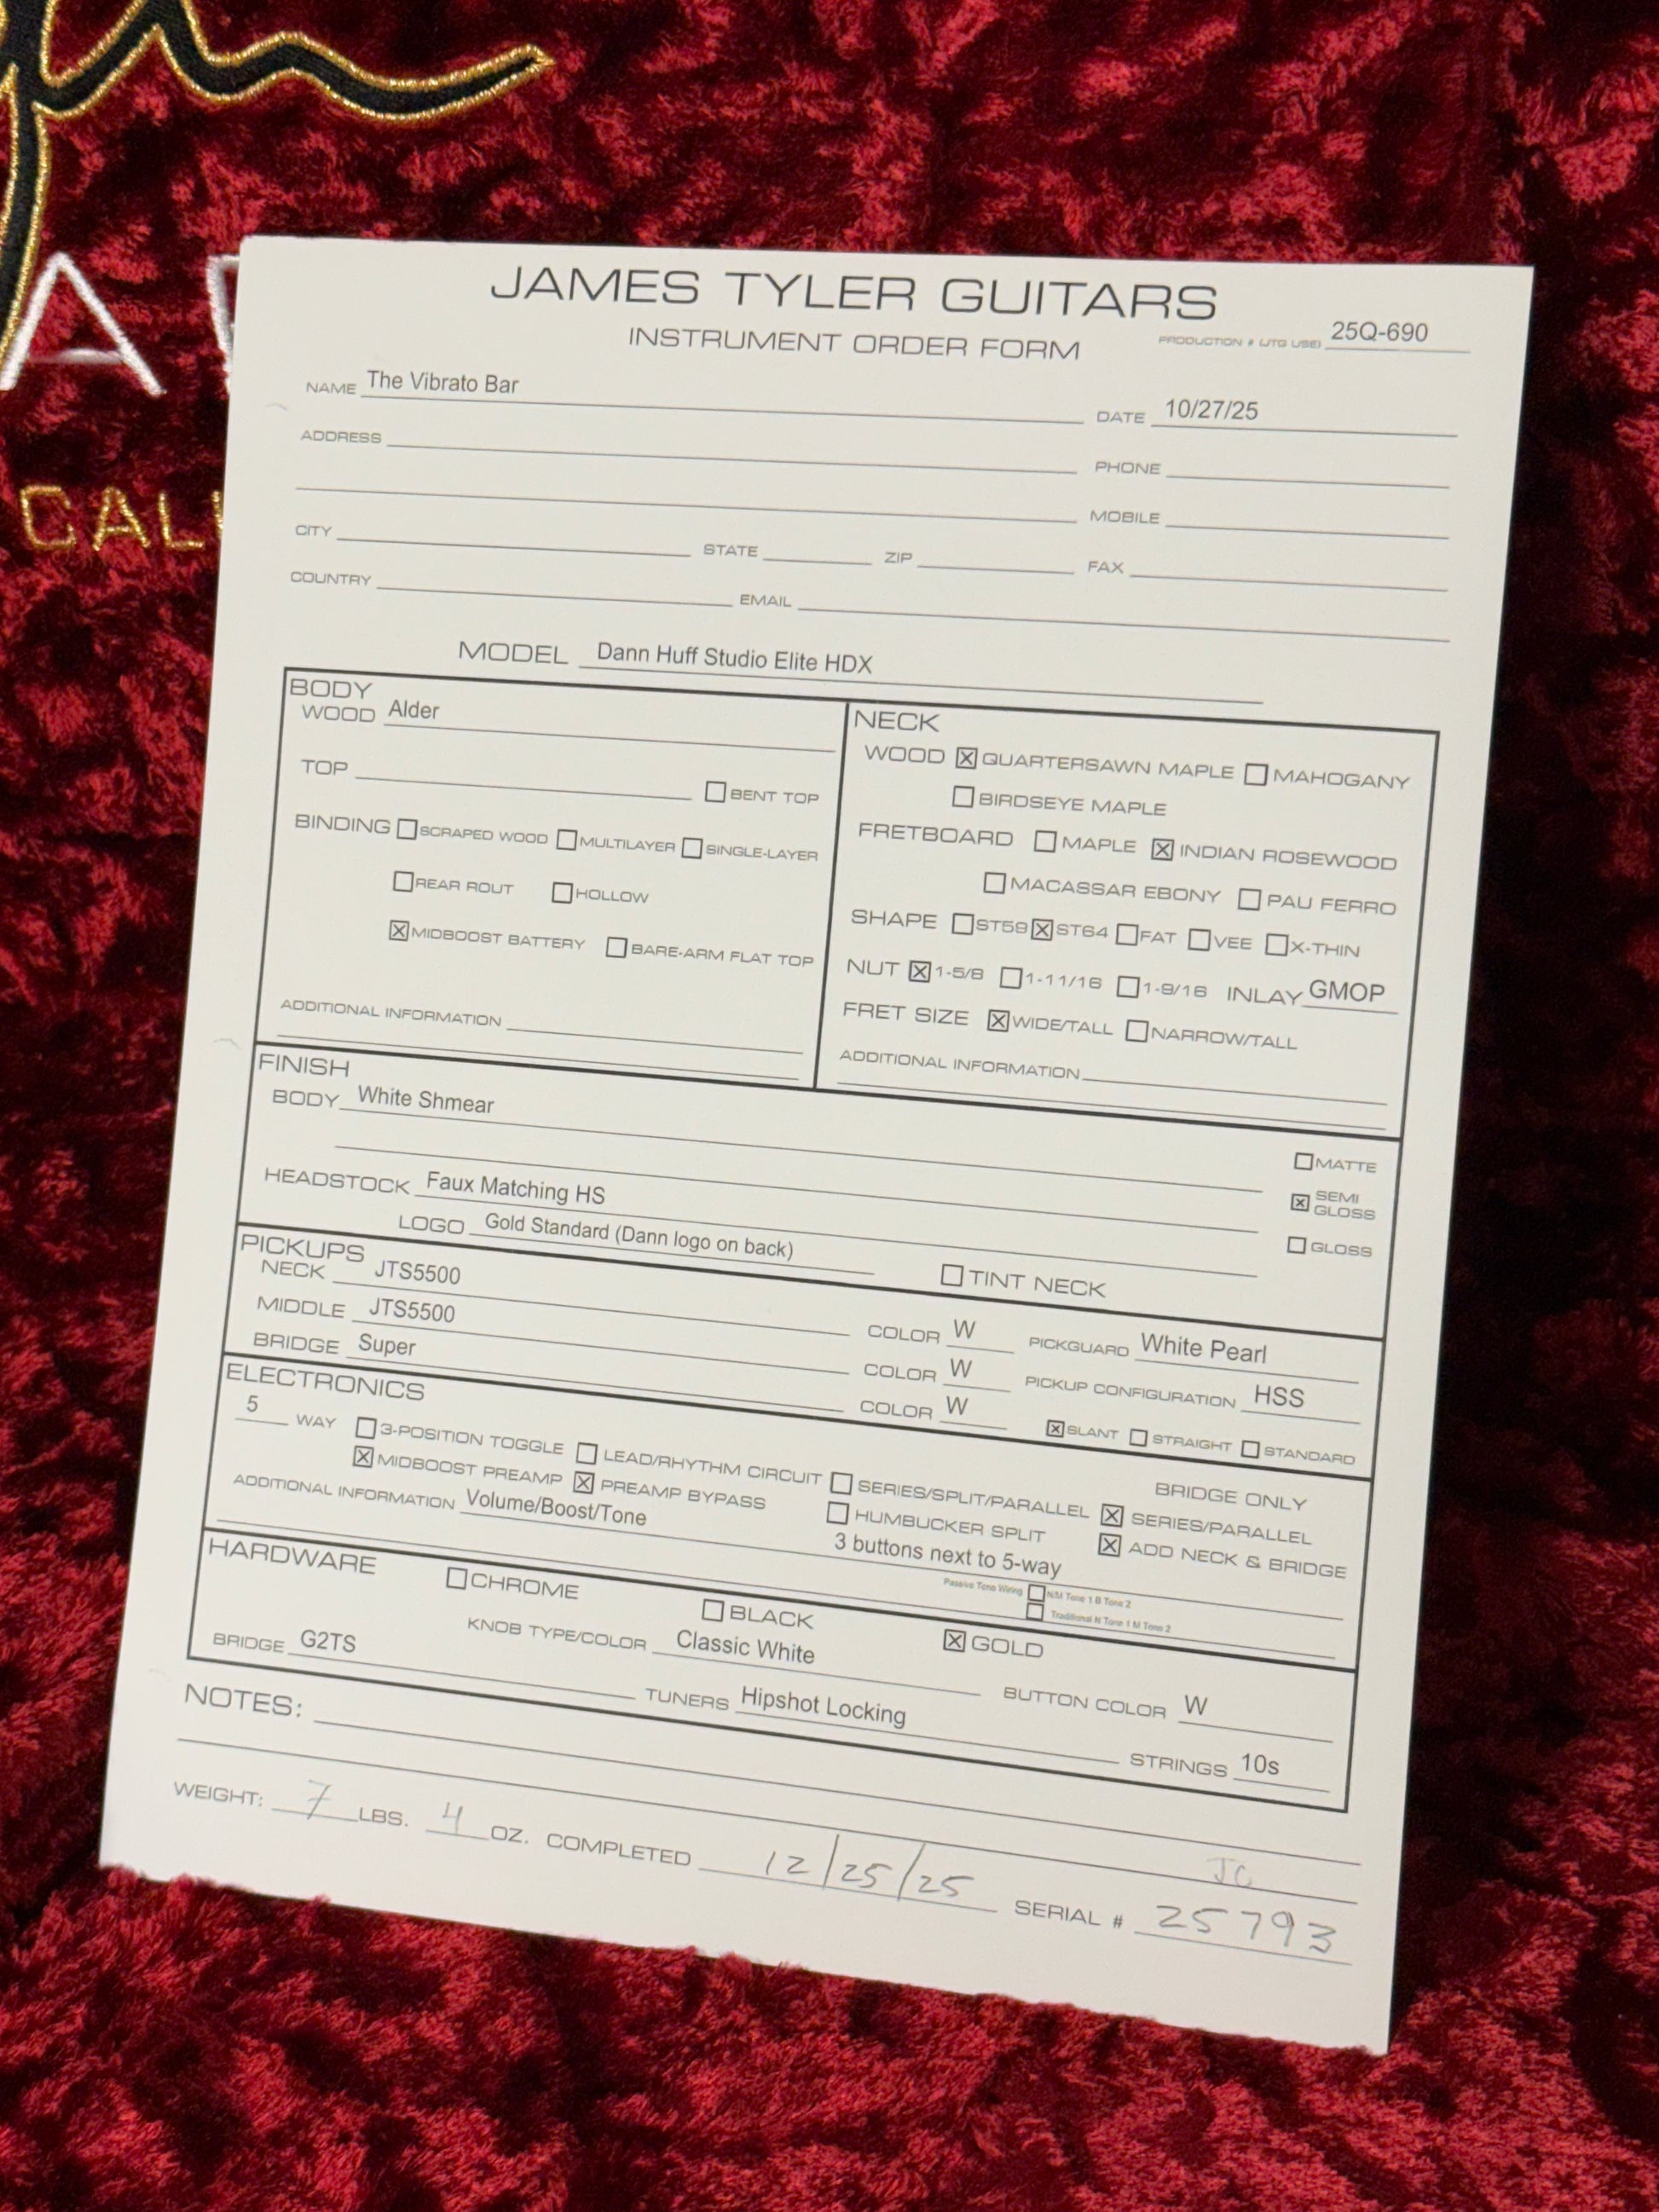 CAL
JAMES TYLER GUITARS
INSTRUMENT ORDER FORM
PRODUCTION # (JTG USE) 25Q-690
NAME The Vibrato Bar DATE 10/27/25
ADDRESS PHONE
MOBILE
CITY STATE ZIP FAX
COUNTRY EMAIL
MODEL Dann Huff Studio Elite HDX
BODY
WOOD Alder
TOP ☐ BENT TOP
BINDING ☐ SCRAPED WOOD ☐ MULTILAYER ☐ SINGLE-LAYER
☐ REAR ROUT ☐ HOLLOW
☒ MIDBOOST BATTERY ☐ BARE-ARM FLAT TOP
ADDITIONAL INFORMATION
NECK
WOOD ☒ QUARTERSAWN MAPLE ☐ MAHOGANY
☐ BIRDSEYE MAPLE
FRETBOARD ☐ MAPLE ☒ INDIAN ROSEWOOD
☐ MACASSAR EBONY ☐ PAU FERRO
SHAPE ☐ ST59 ☒ ST64 ☐ FAT ☐ VEE ☐ X-THIN
NUT ☒ 1-5/8 ☐ 1-11/16 ☐ 1-9/16 INLAY GMOP
FRET SIZE ☒ WIDE/TALL ☐ NARROW/TALL
ADDITIONAL INFORMATION
FINISH
BODY White Shmear
☐ MATTE
HEADSTOCK Faux Matching HS
☒ SEMI GLOSS
LOGO Gold Standard (Dann logo on back)
☐ GLOSS
☐ TINT NECK
PICKUPS
NECK JTS5500 COLOR W PICKGUARD White Pearl
MIDDLE JTS5500 COLOR W PICKUP CONFIGURATION HSS
BRIDGE Super COLOR W ☒ SLANT ☐ STRAIGHT ☐ STANDARD
ELECTRONICS
5 WAY ☐ 3-POSITION TOGGLE ☐ LEAD/RHYTHM CIRCUIT ☐ SERIES/SPLIT/PARALLEL BRIDGE ONLY ☒ SERIES/PARALLEL
☒ MIDBOOST PREAMP ☒ PREAMP BYPASS ☐ HUMBUCKER SPLIT ☒ ADD NECK & BRIDGE
ADDITIONAL INFORMATION Volume/Boost/Tone 3 buttons next to 5-way
Passive Tone Wiring ☐ N/M Tone 1 B Tone 2
☐ Traditional N Tone 1 M Tone 2
HARDWARE ☐ CHROME ☐ BLACK ☒ GOLD
BRIDGE G2TS KNOB TYPE/COLOR Classic White BUTTON COLOR W
TUNERS Hipshot Locking STRINGS 10s
NOTES:
JC
WEIGHT: 7 LBS. 4 OZ. COMPLETED 12/25/25 SERIAL # 25793